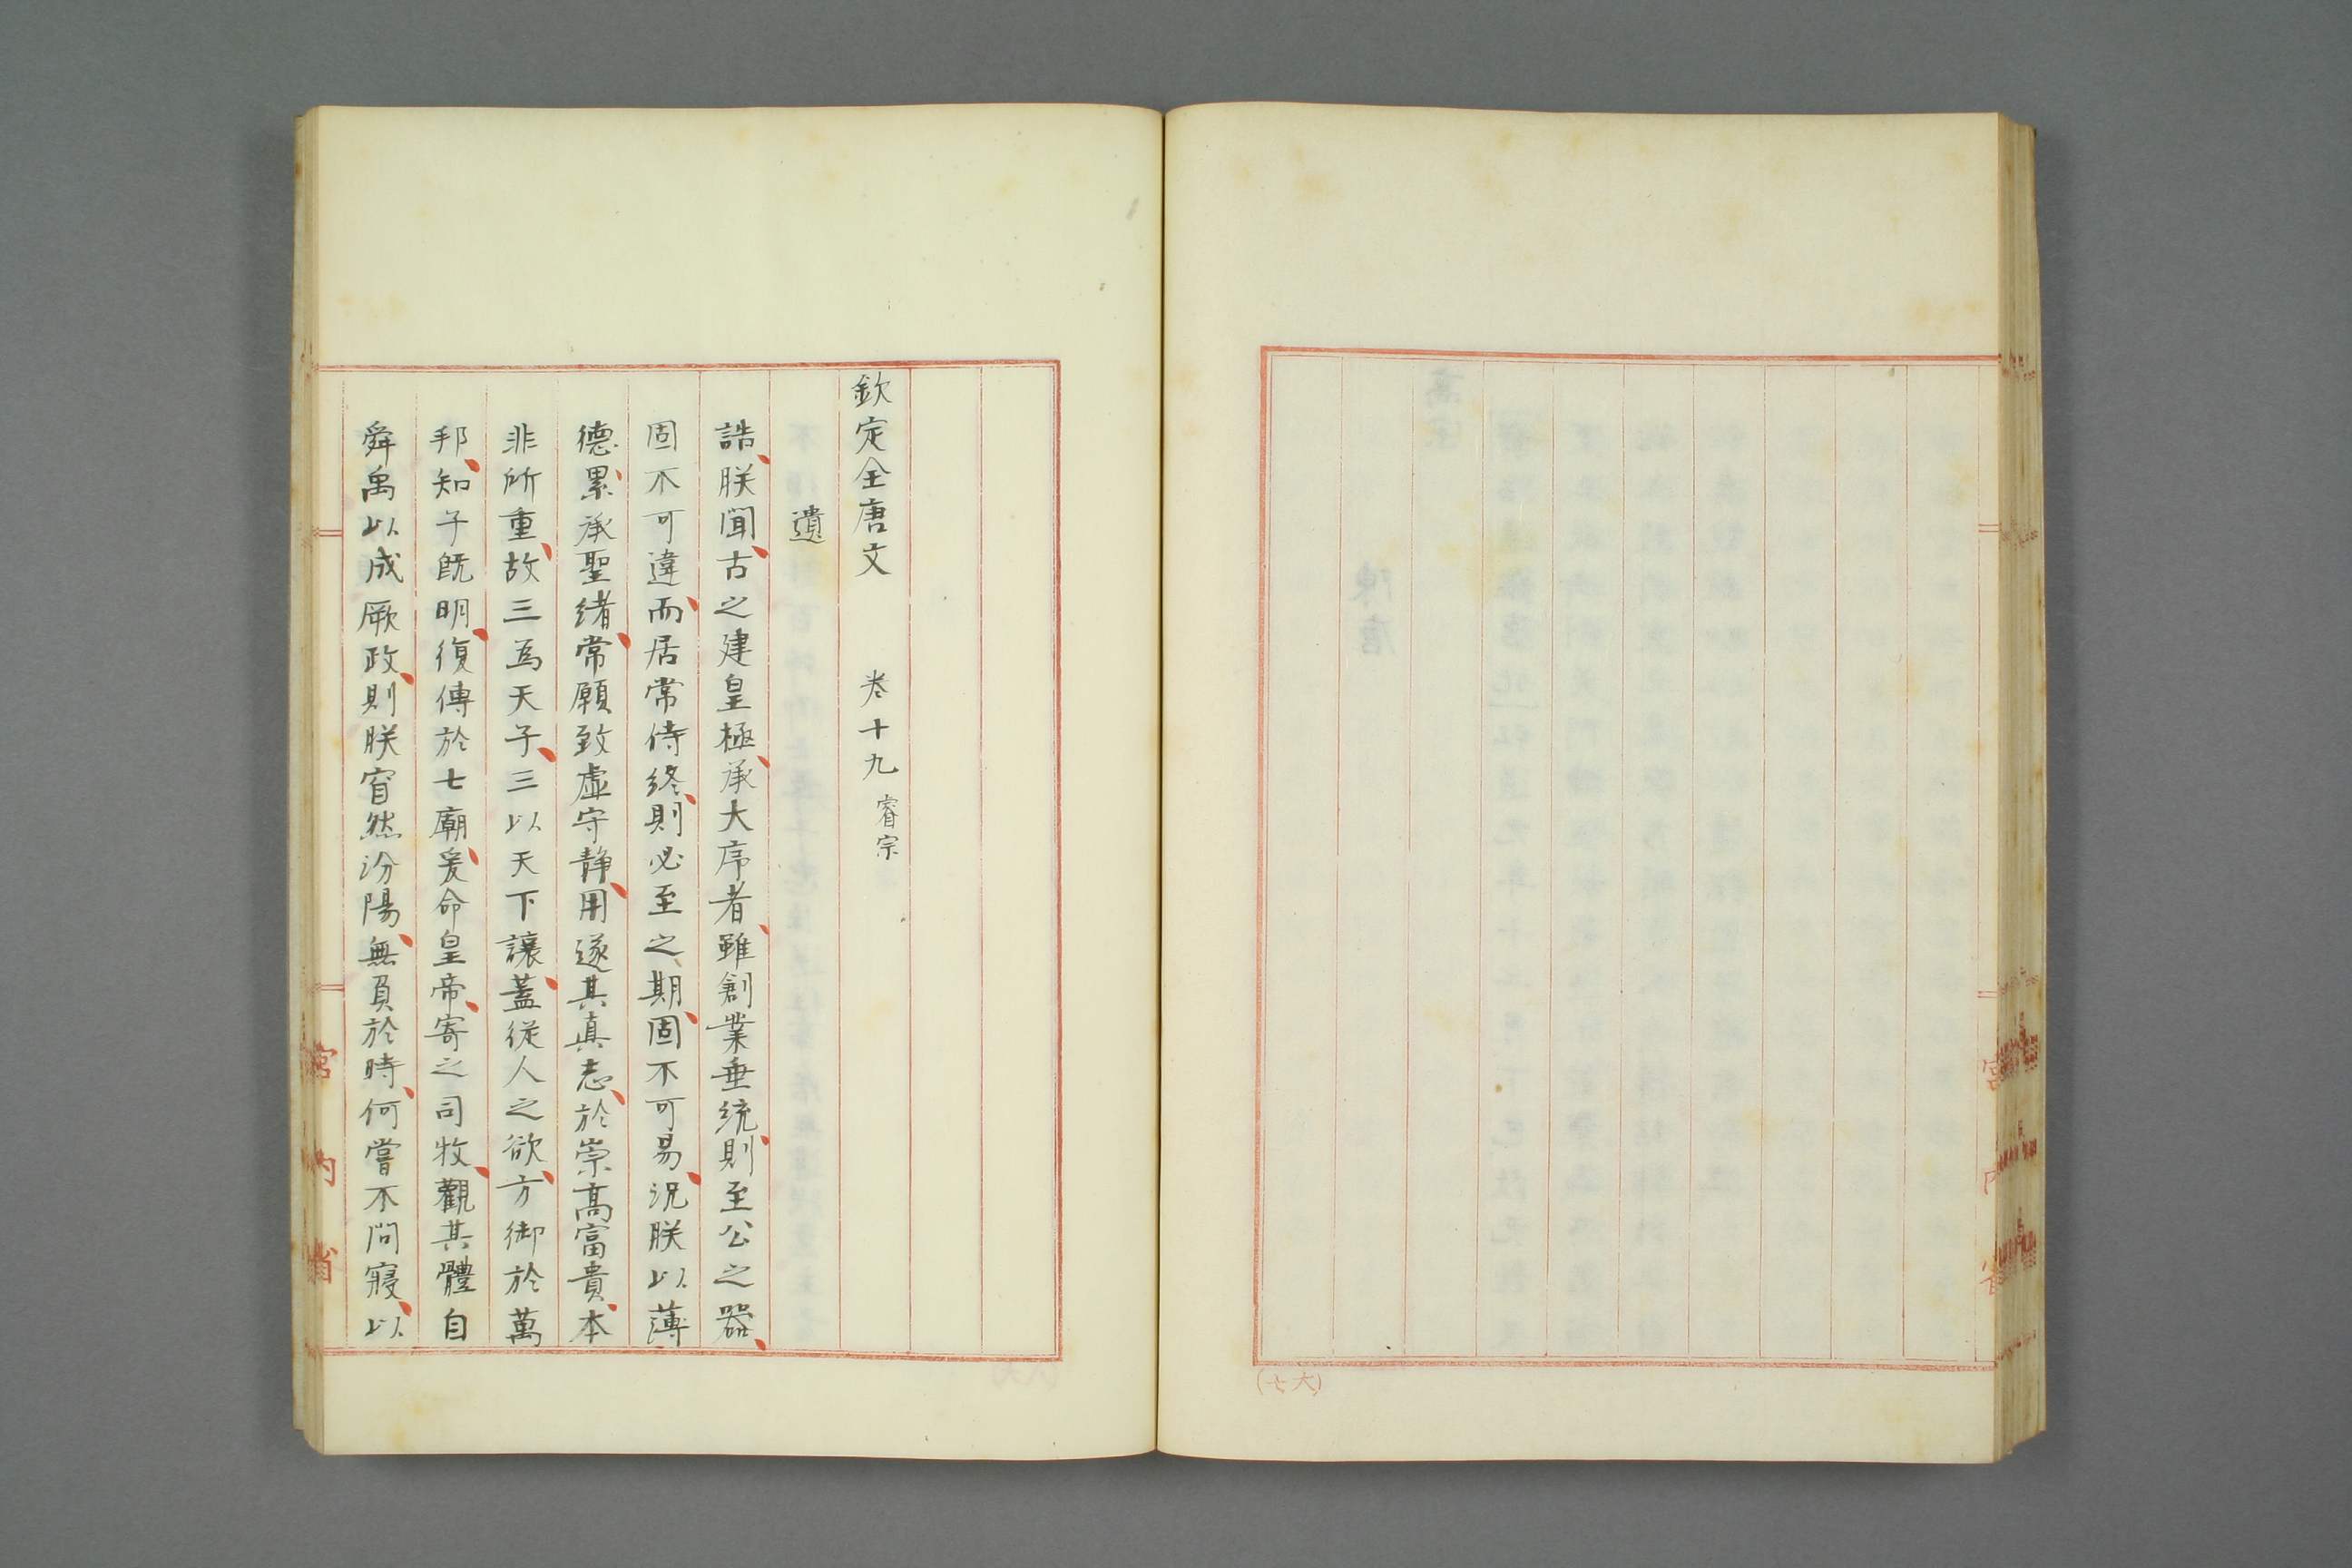 欽定全唐文 卷十九 睿宗
遺
誥朕聞古之建皇極承大序者雖創業垂統則至公之器
固不可違而居常待終則必至之期固不可易況朕以薄
德累承聖緒常願致虛守靜用遂其真志於崇高富貴本
非所重故三為天子三以天下讓蓋從人之欲方御於萬
邦知子既明復傳於七廟爰命皇帝寄之司牧觀其體自
舜禹以成厥政則朕窅然汾陽無負於時何嘗不問寢以
宮內省
(七六)